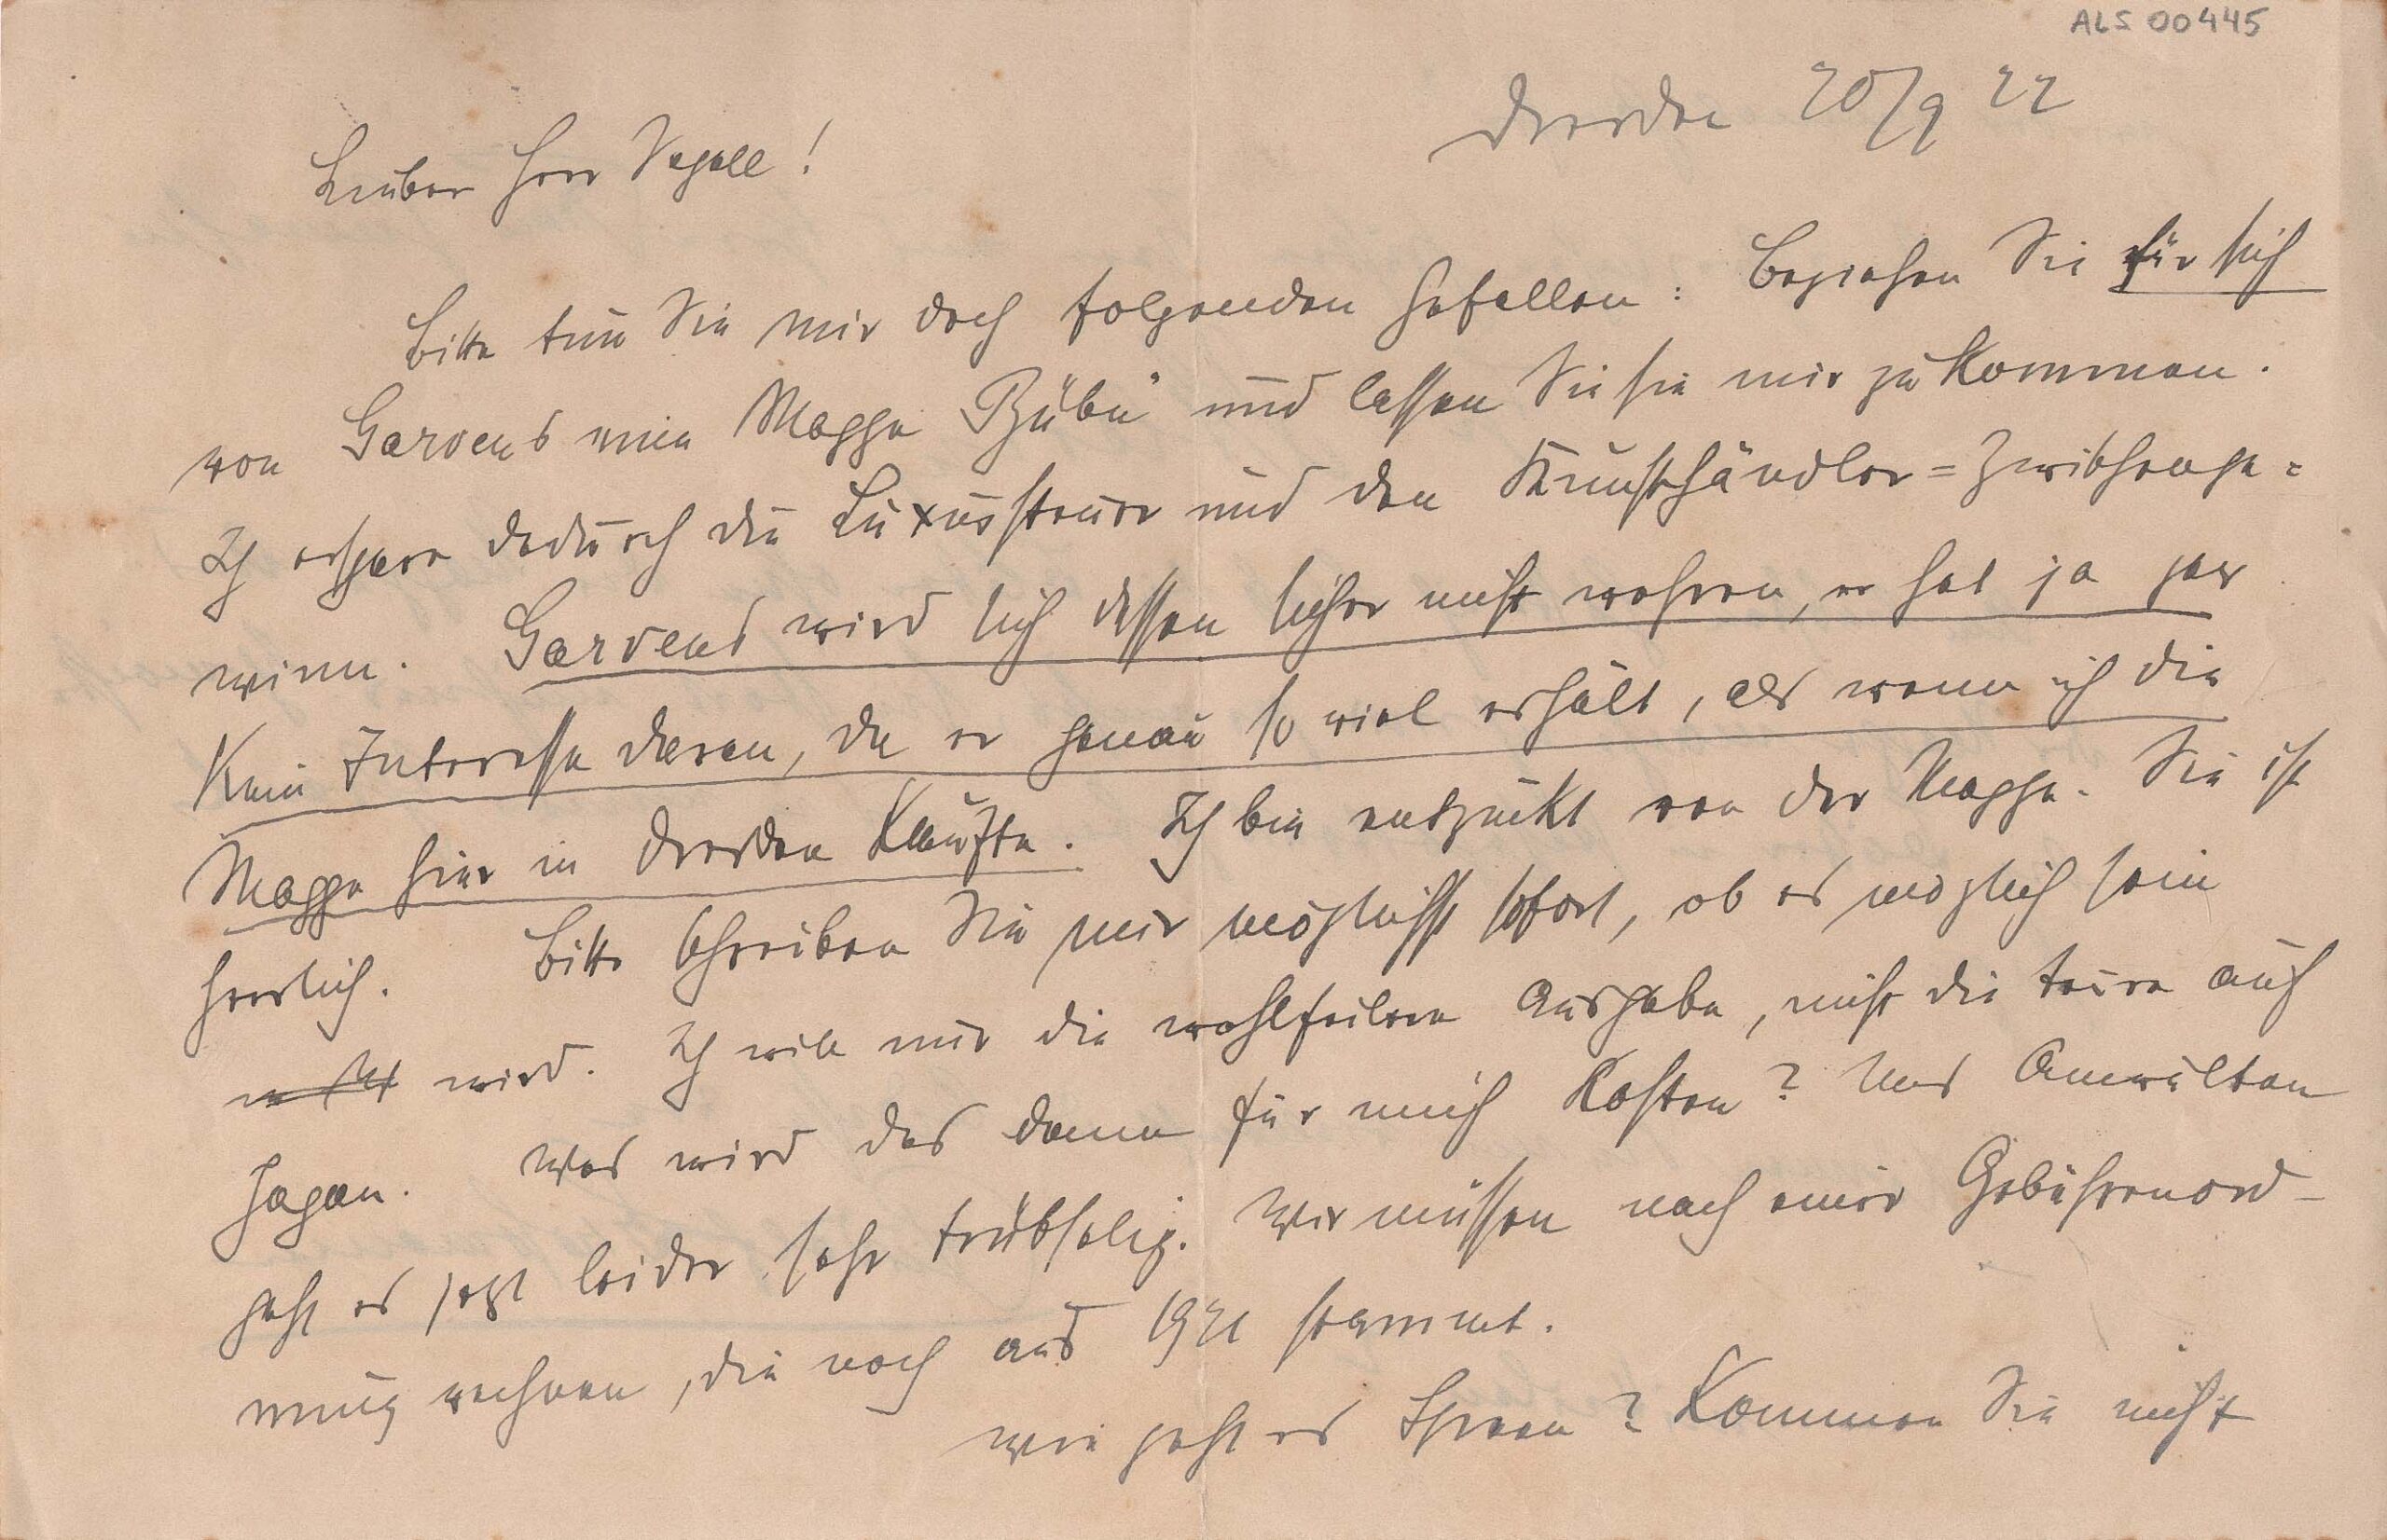 ALS 00445
Dresden 20/9 22
Lieber Herr Segall!
Bitte tun Sie mir doch folgenden Gefallen: Beziehen Sie für sich
von Garvens eine Mappe „Bübü“ und lassen Sie sie mir zukommen.
Ich erspare dadurch die Luxussteuer und den Kunsthändler=Zwischenge=
winn. Garvens wird sich dessen sicher nicht wehren, er hat ja gar
kein Interesse daran, da er genau so viel erhält, als wenn ich die
Mappe hier in Dresden kaufte. Ich bin entzückt von der Mappe. Sie ist
herrlich. Bitte schreiben Sie mir möglichst sofort, ob es möglich sein
wird. Ich will nur die wohlfeilere Ausgabe, nicht die teure auf
Japan. Was wird das dann für mich kosten? Uns Anwälten
geht es jetzt leider sehr trübselig. Wir müssen nach einer Gebührenord-
nung rechnen, die noch aus 1921 stammt.
Wie geht es Ihnen? Kommen Sie nicht